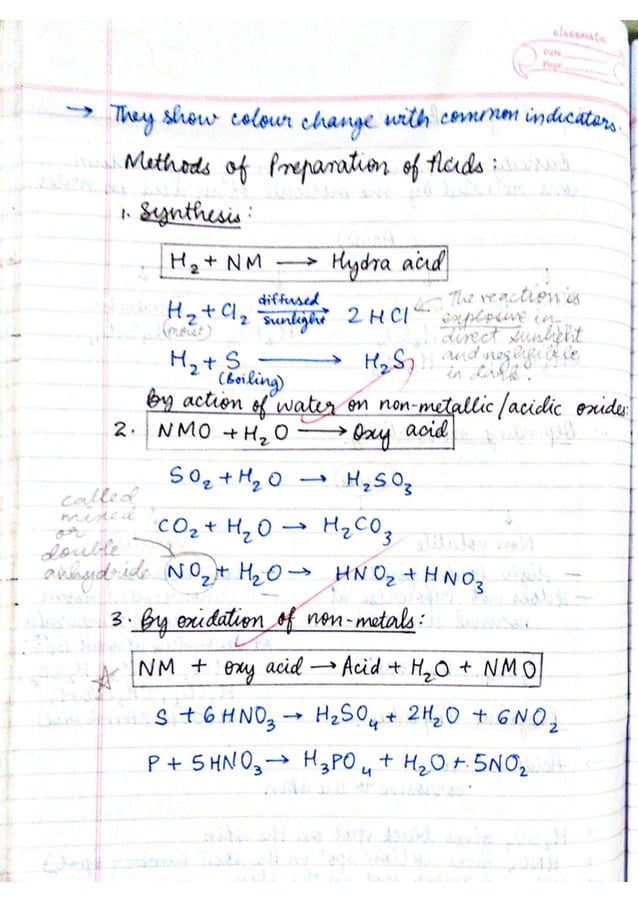 classmate
Date
Page
→ They show colour change with common indicators.
Methods of Preparation of Acids:
1. Synthesis:
H₂ + NM → Hydra acid
H₂ + Cl₂ diffused sunlight → 2HCl
(moist)
← The reaction is
explosive in
direct sunlight
and negligible
in dark.
H₂ + S → H₂S
(Boiling)
By action of water on non-metallic/acidic oxides:
2. NMO + H₂O → Oxy acid
SO₂ + H₂O → H₂SO₃
CO₂ + H₂O → H₂CO₃
called
mixed
or
double
anhydride
NO₂ + H₂O → HNO₂ + HNO₃
3. By oxidation of non-metals:
☆ NM + oxy acid → Acid + H₂O + NMO
S + 6HNO₃ → H₂SO₄ + 2H₂O + 6NO₂
P + 5HNO₃ → H₃PO₄ + H₂O + 5NO₂